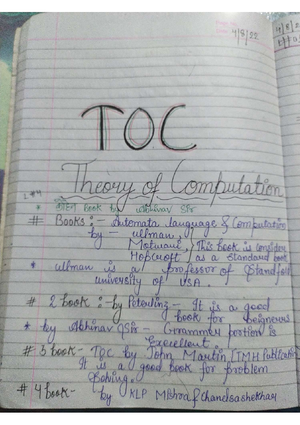 4/8/22
TOC
Theory of Computation
* Book by Abhinav Sir
# Books :- Automata language & Computation
by - ullman,
Motwani, } This book is consider
Hopcroft as a Standard book
* ullman is a professor of Standford
university of USA.
# 2 book :- by - It is a good
book for
* by Abhinav Sir - Grammer portion is
Excellent
# 3 book - TOC by John Martin [TMH Publication]
It is a good book for problem
Solving.
# 4 book - by KLP Mishra & Chandrashekhar